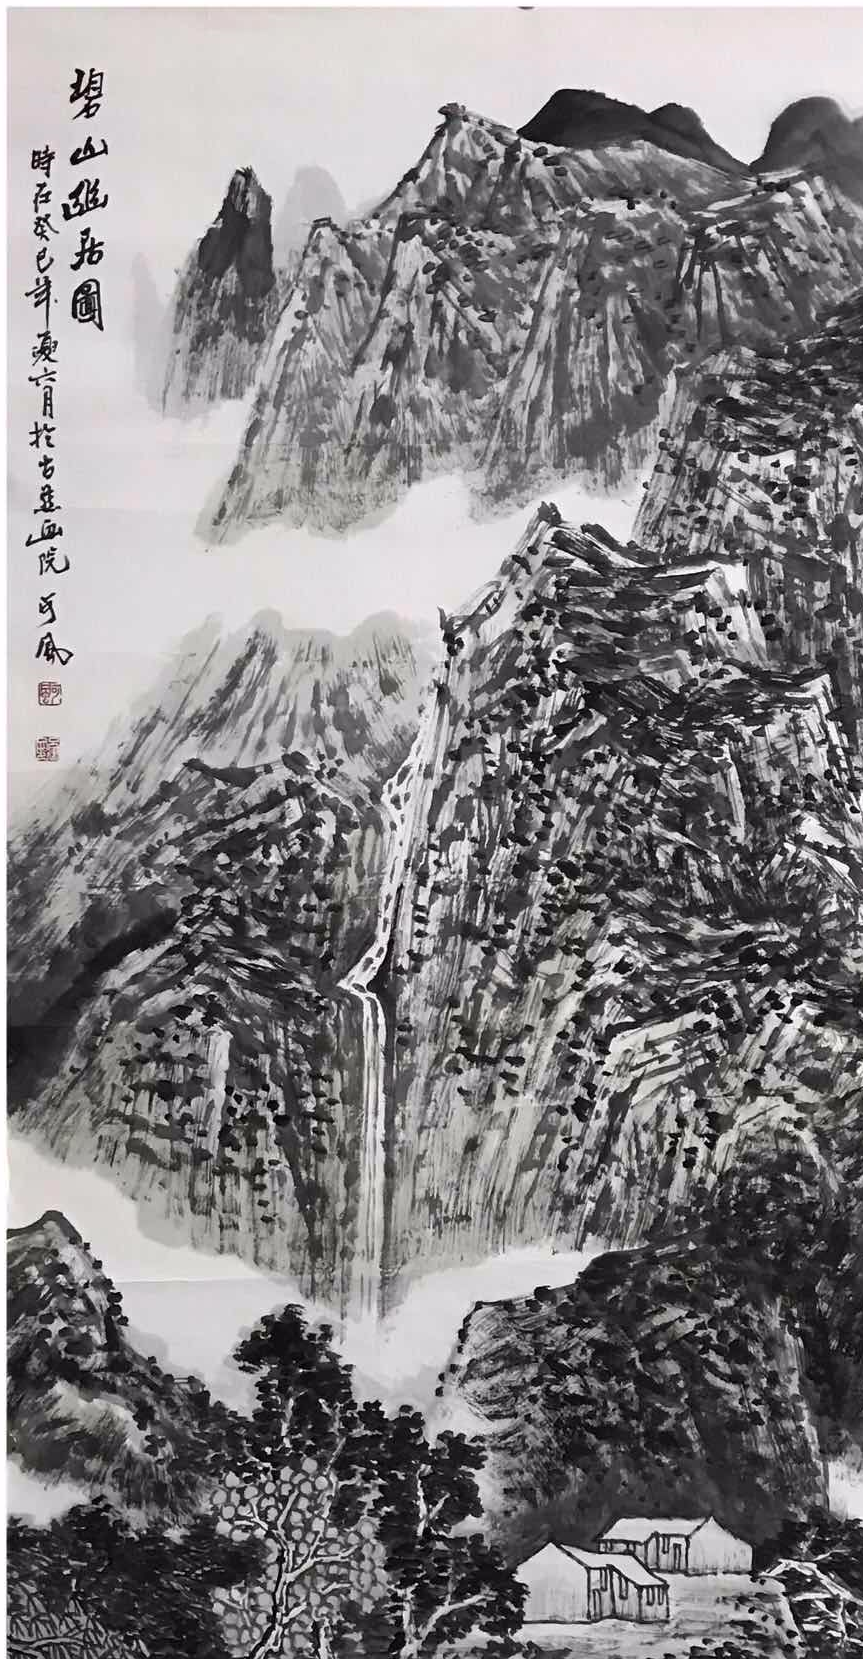 碧山幽居圖
時在癸巳年夏六月於古燕画院